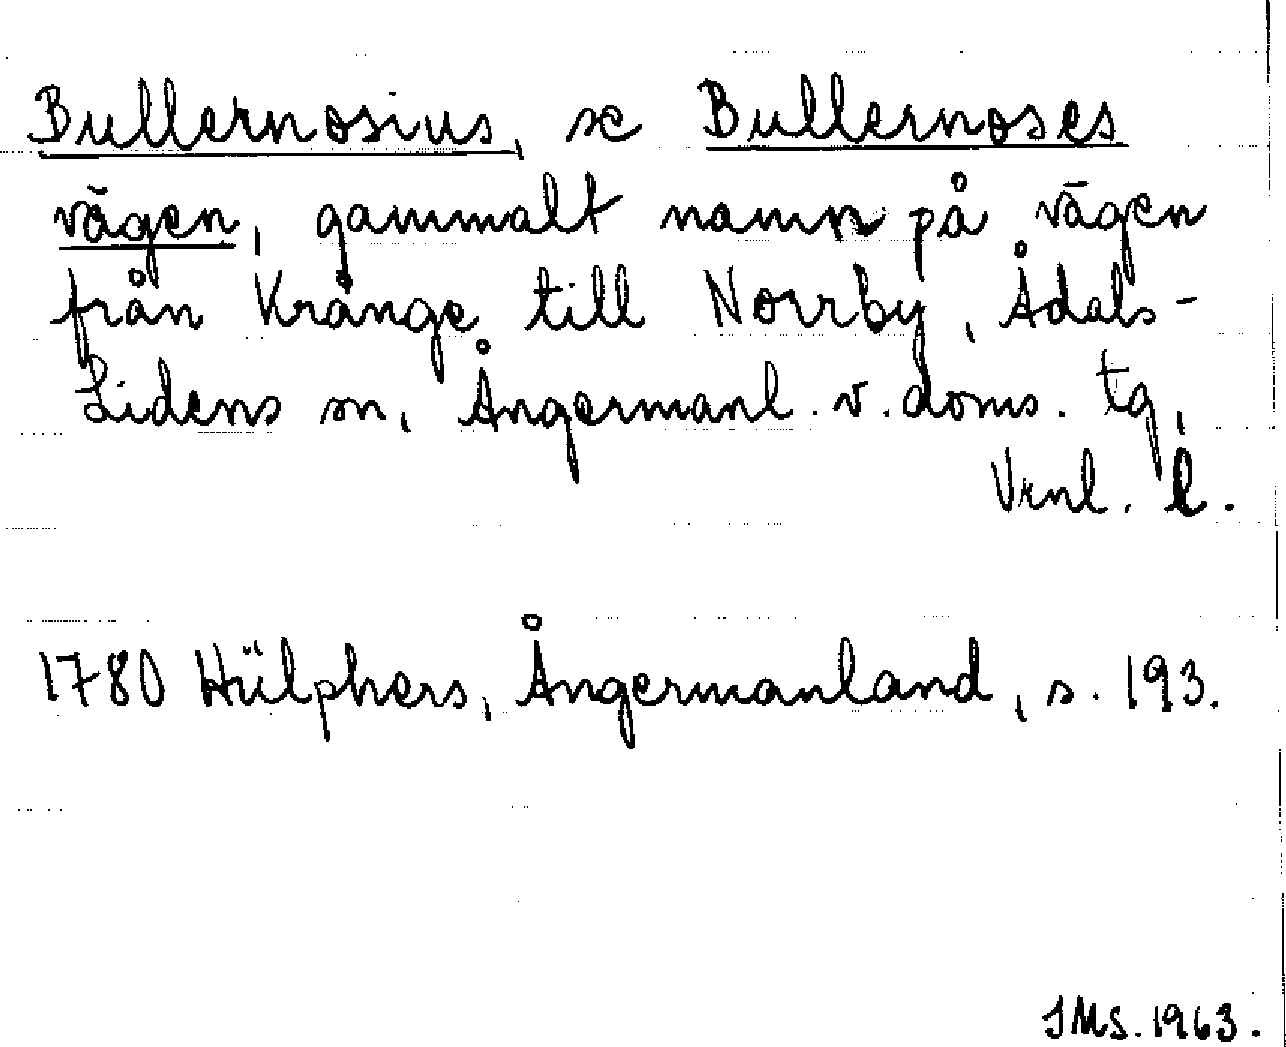 Bullernosius, se Bullernoses
vägen, gammalt namn på vägen
från Krånge till Norrby, Ådals-
Lidens sn, Ångermanl. v. doms. tg,
Vrnl. l.
1780 Hülphers, Ångermanland, s. 193.
JMS. 1963.